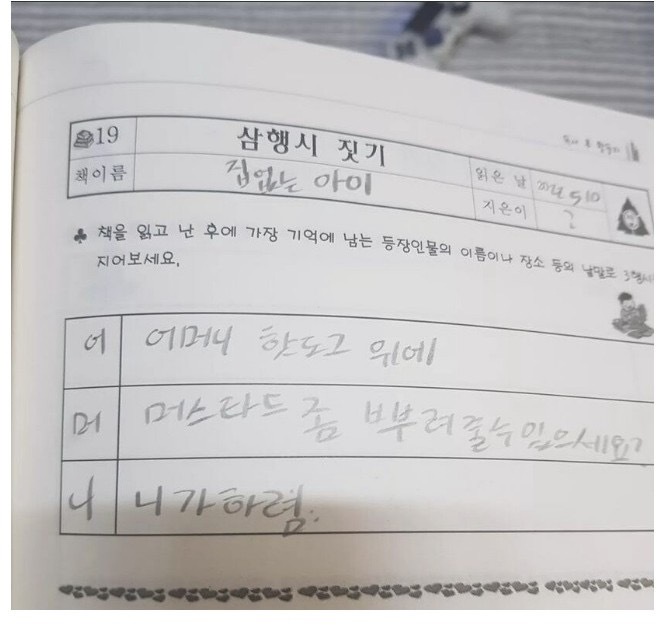 19 삼행시 짓기
책이름 집없는 아이
읽은 날 510
지은이 ?
♣ 책을 읽고 난 후에 가장 기억에 남는 등장인물의 이름이나 장소 등의 낱말로 3행시
지어보세요.
어 어머니 핫도그 위에
머 머스타드 좀 뿌러줄수있으세요?
니 니가하렴.